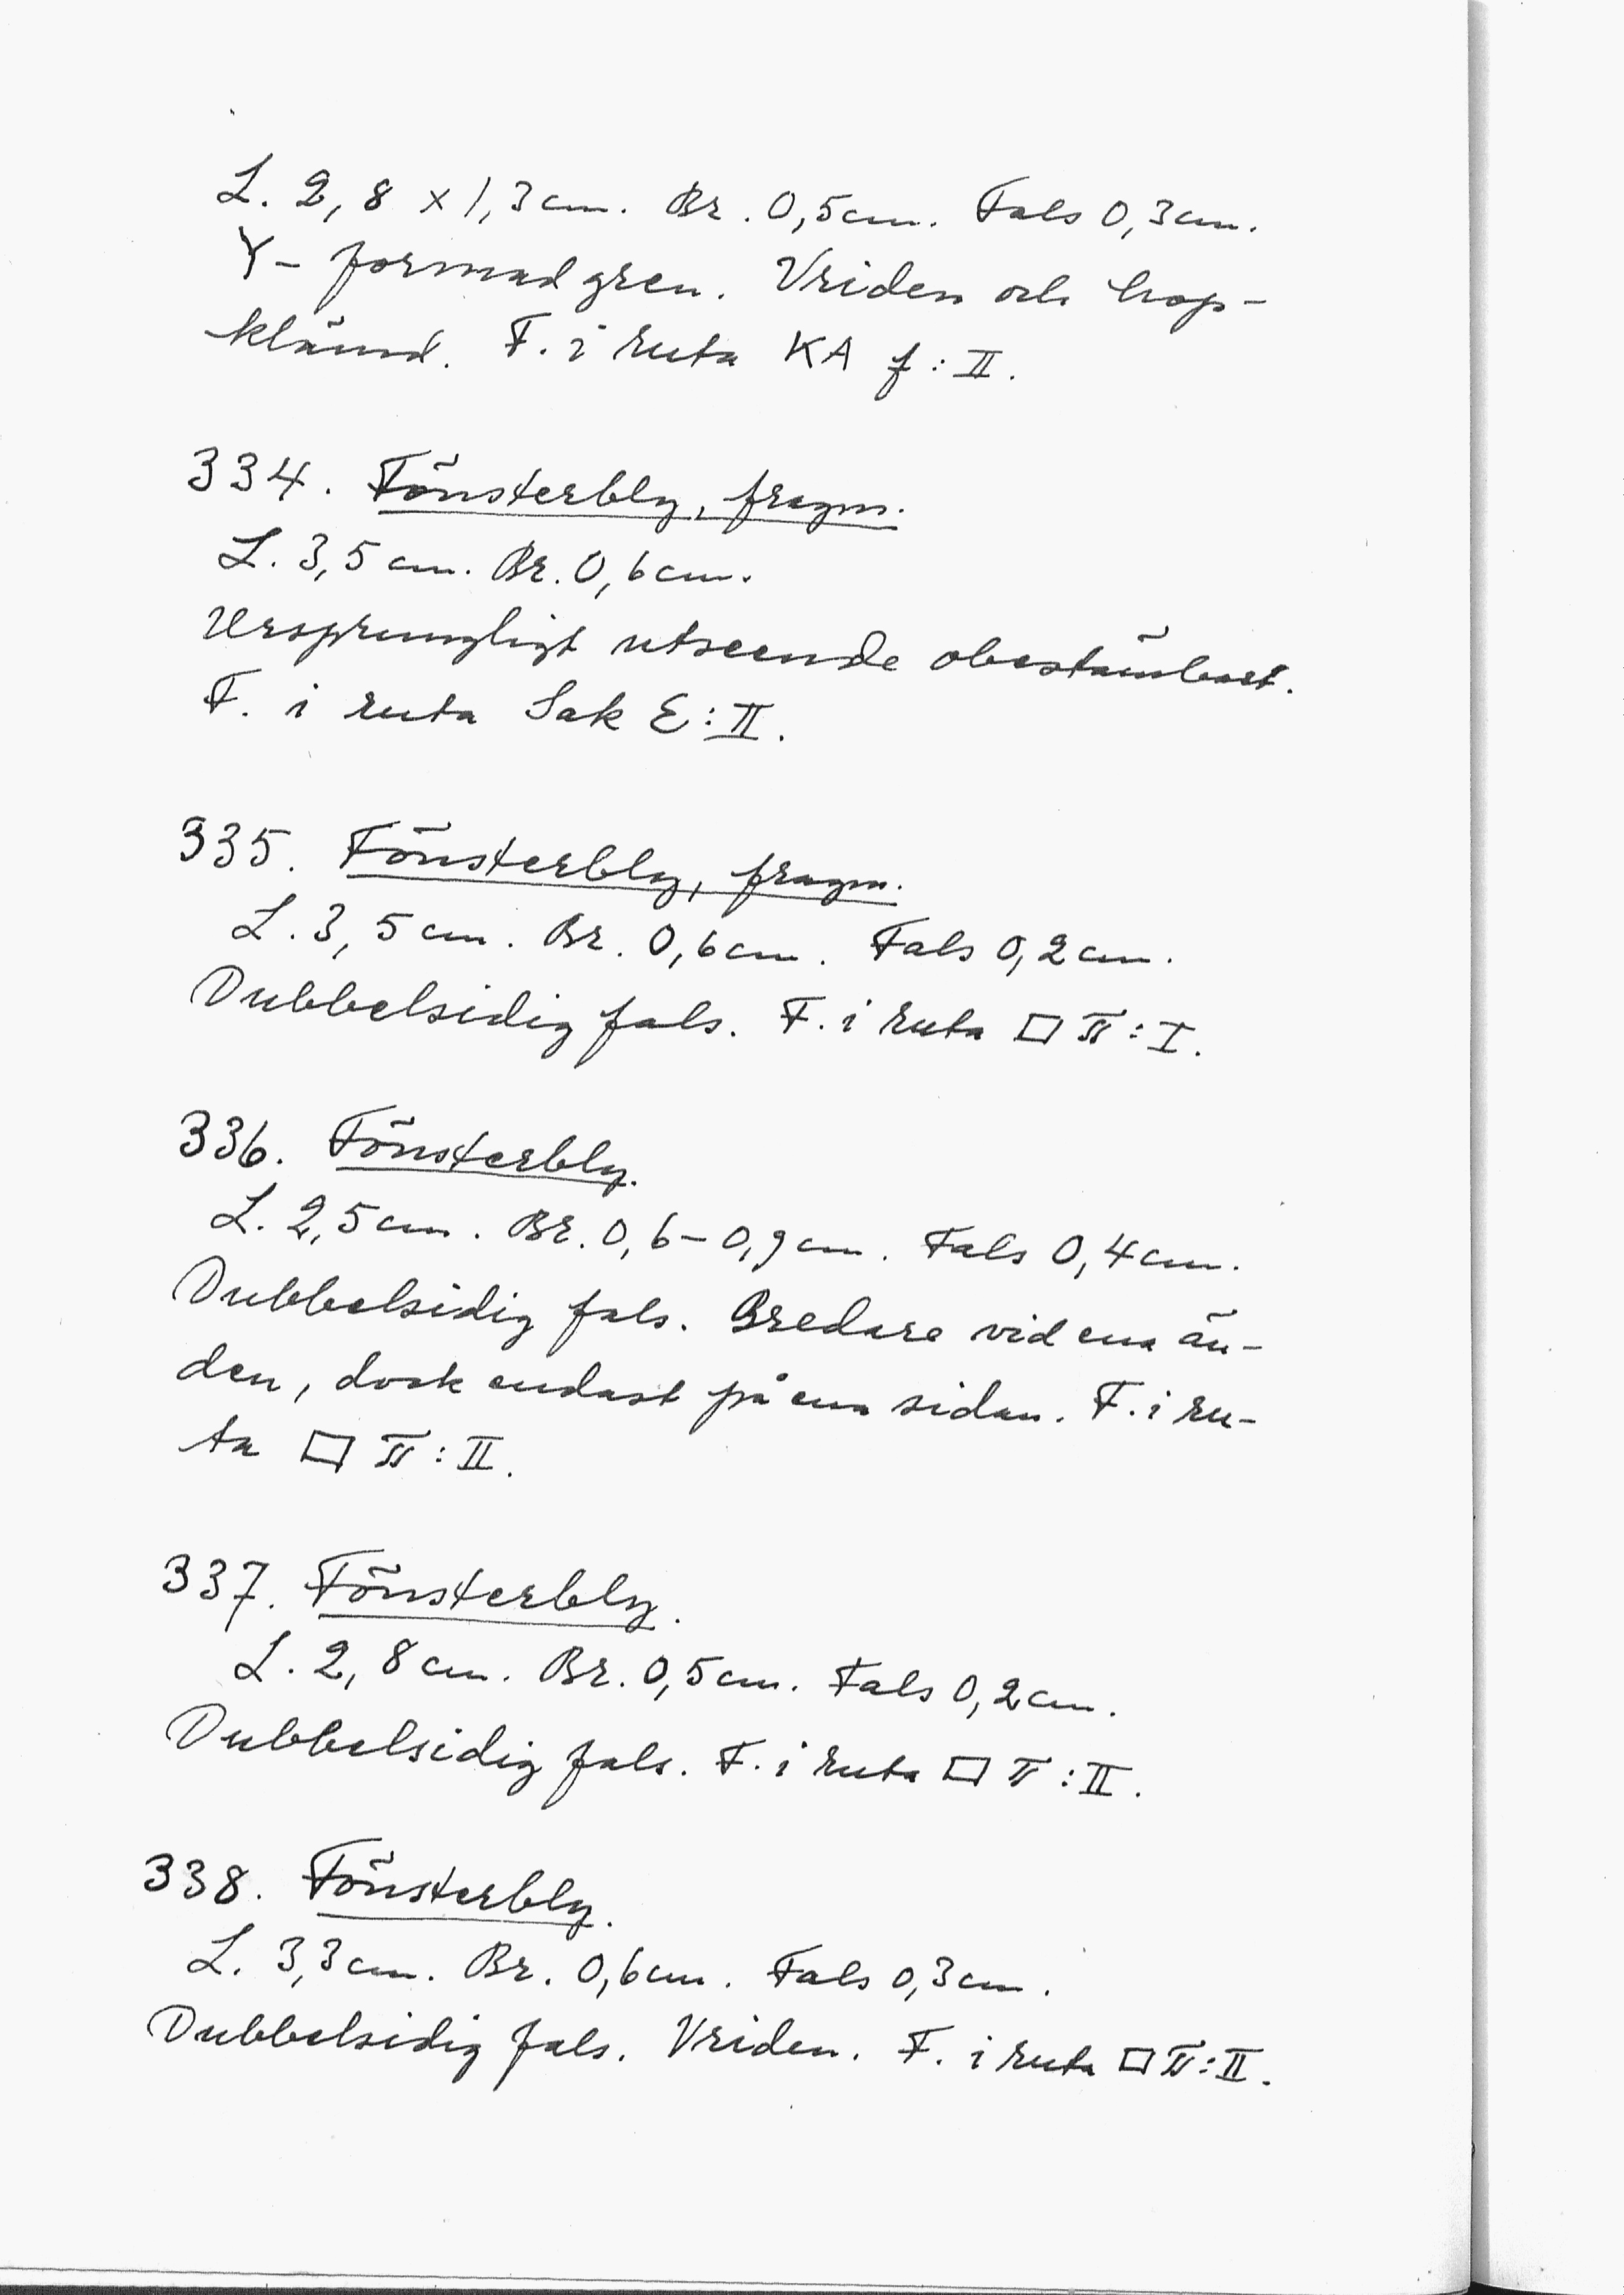 L. 2,8 x 1,3 cm. Br. 0,5 cm. Fals 0,3 cm.
Y-formad gren. Vriden och hop-
klämd. F. i ruta KA f:II.
334. Fönsterbly, fragm.
L. 3,5 cm. Br. 0,6 cm.
Ursprungligt utseende obestämbart.
F. i ruta Sak E:II.
335. Fönsterbly, fragm.
L. 3,5 cm. Br. 0,6 cm. Fals 0,2 cm.
Dubbelsidig fals. F. i ruta □ π:I.
336. Fönsterbly.
L. 2,5 cm. Br. 0,6-0,9 cm. Fals 0,4 cm.
Dubbelsidig fals. Bredare vid ena än-
den, dock endast på ena sidan. F. i ru-
ta □ π:II.
337. Fönsterbly.
L. 2,8 cm. Br. 0,5 cm. Fals 0,2 cm.
Dubbelsidig fals. F. i ruta □ π:II.
338. Fönsterbly.
L. 3,3 cm. Br. 0,6 cm. Fals 0,3 cm.
Dubbelsidig fals. Vriden. F. i ruta □ π:II.